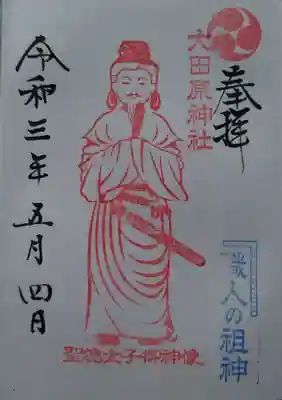 奉拝
大田原神社
令和三年五月四日
聖徳太子御神像
職人の祖神